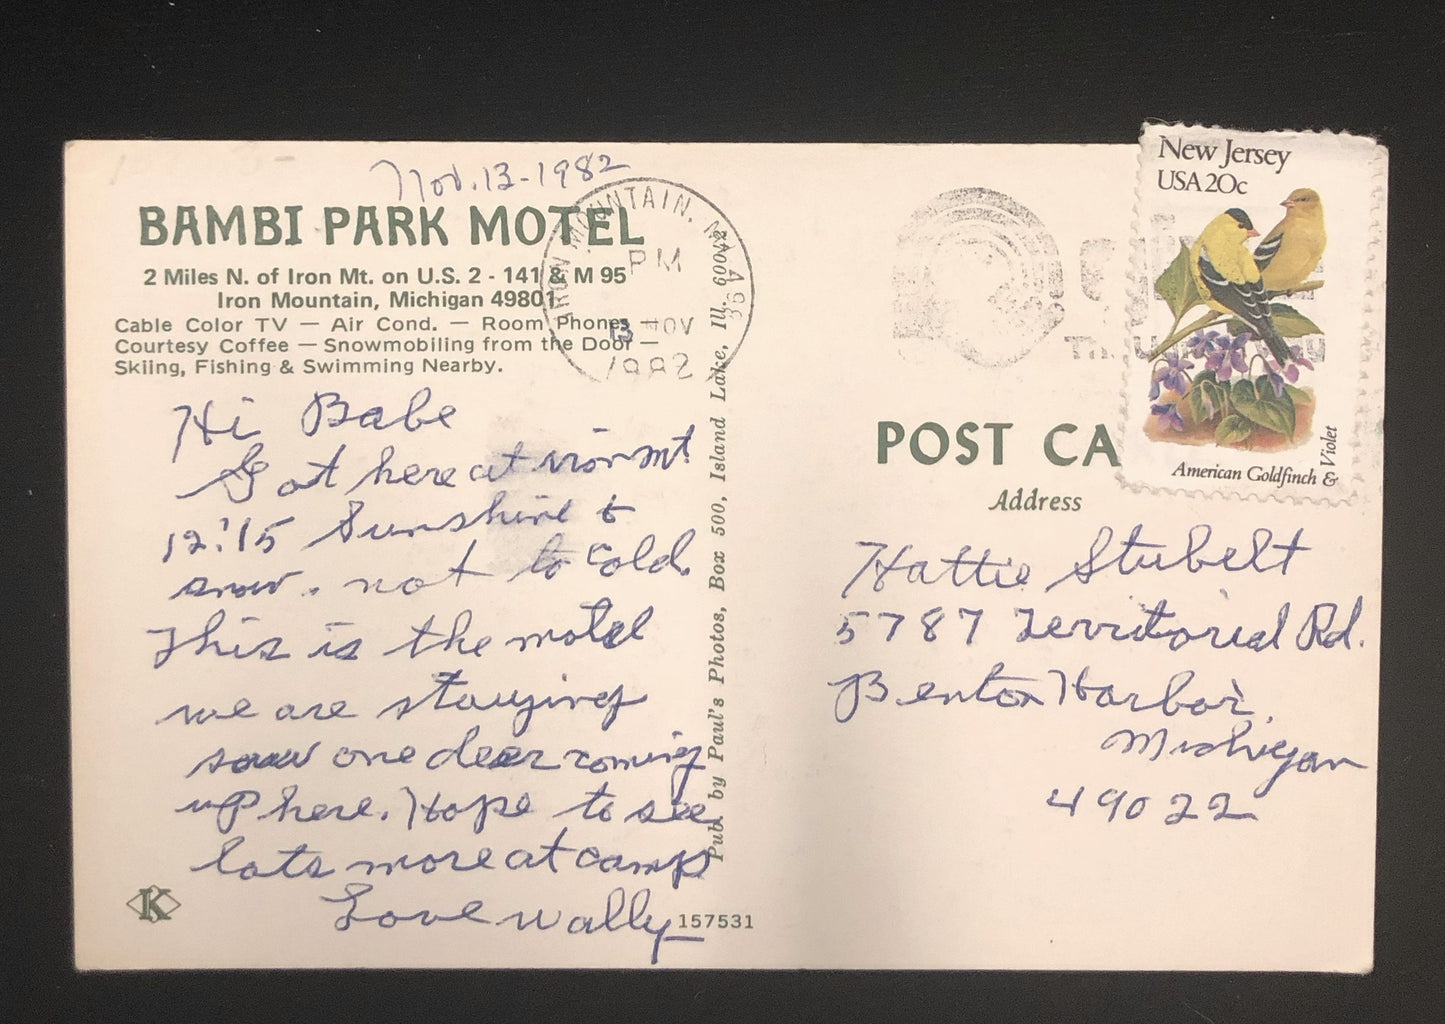 Nov. 13-1982
BAMBI PARK MOTEL
2 Miles N. of Iron Mt. on U.S. 2 - 141 & M 95
Iron Mountain, Michigan 49801
Cable Color TV — Air Cond. — Room Phones
Courtesy Coffee — Snowmobiling from the Door —
Skiing, Fishing & Swimming Nearby.
Hi Babe
Got here at iron mt.
12:15 Sunshine &
snow. not to cold.
This is the motel
we are staying
saw one deer coming
up here. Hope to see
lots more at camp
Love Wally
K
157531
IRON MOUNTAIN, MI 498
PM
13 NOV
1982
Pub. by Paul's Photos, Box 500, Island Lake, Ill. 60042
New Jersey
USA 20c
American Goldfinch & Violet
POST CA
Address
Hattie Stubelt
5787 Territorial Rd.
Benton Harbor,
Michigan
49022